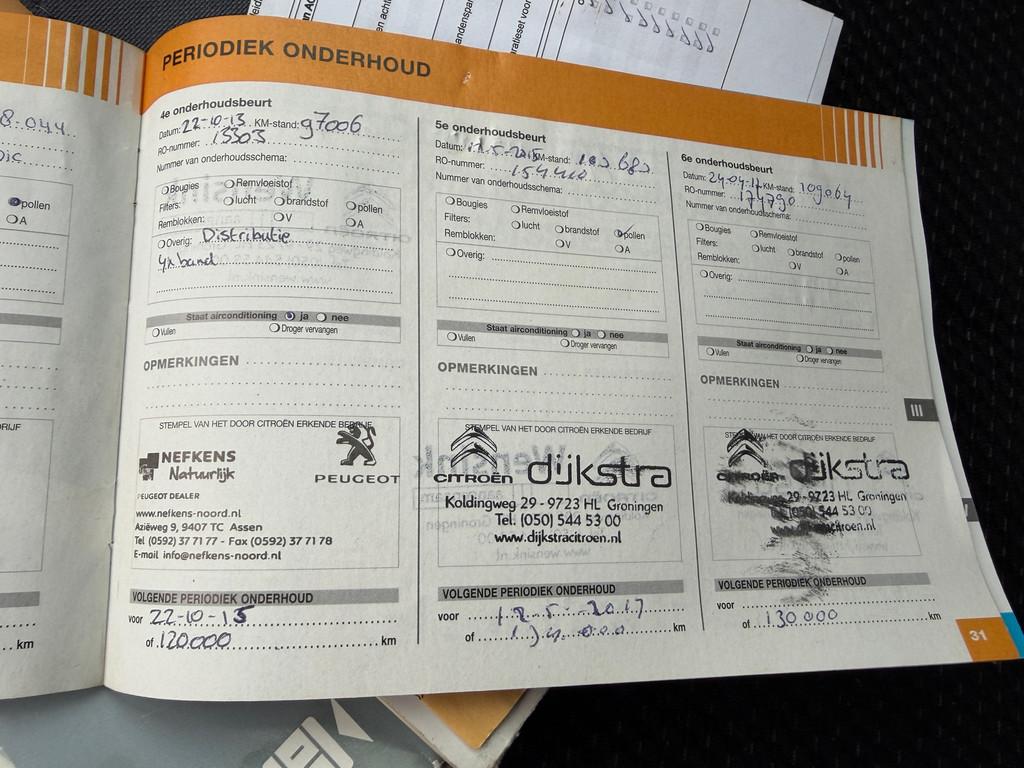 8.044
pollen
A
RIJF
km
PERIODIEK ONDERHOUD
4e onderhoudsbeurt
Datum: 22-10-13 KM-stand: 97006
RO-nummer: 13303
Nummer van onderhoudsschema:
Bougies Remvloeistof
Filters: lucht brandstof pollen
Remblokken: V A
Overig: Distributie
4x band
Staat airconditioning ja nee
Vullen Droger vervangen
OPMERKINGEN
STEMPEL VAN HET DOOR CITROËN ERKENDE BEDRIJF
NEFKENS
Natuurlijk
PEUGEOT
PEUGEOT DEALER
www.nefkens-noord.nl
Aziëweg 9, 9407 TC Assen
Tel (0592) 37 71 77 - Fax (0592) 37 71 78
E-mail info@nefkens-noord.nl
VOLGENDE PERIODIEK ONDERHOUD
voor 22-10-15
of 120.000 km
5e onderhoudsbeurt
Datum: KM-stand:
RO-nummer: 154410
Nummer van onderhoudsschema:
Bougies Remvloeistof
Filters: lucht brandstof pollen
Remblokken: V A
Overig:
Staat airconditioning ja nee
Vullen Droger vervangen
OPMERKINGEN
STEMPEL VAN HET DOOR CITROËN ERKENDE BEDRIJF
CITROËN dijkstra
Koldingweg 29 - 9723 HL Groningen
Tel. (050) 544 53 00
www.dijkstracitroen.nl
VOLGENDE PERIODIEK ONDERHOUD
voor 12-5-2017
of km
6e onderhoudsbeurt
Datum: 24-04-17 KM-stand: 109064
RO-nummer: 174790
Nummer van onderhoudschema:
Bougies Remvloeistof
Filters: lucht brandstof pollen
Remblokken: V A
Overig:
Staat airconditioning ja nee
Vullen Droger vervangen
OPMERKINGEN
STEMPEL VAN HET DOOR CITROËN ERKENDE BEDRIJF
CITROËN dijkstra
Koldingweg 29 - 9723 HL Groningen
(050) 544 53 00
VOLGENDE PERIODIEK ONDERHOUD
voor
of 130 000 km
III
31